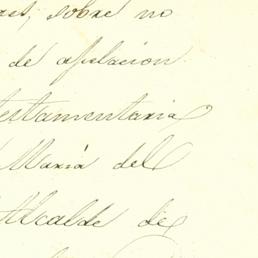 res, sobre no
de apelacion
testamentaria
Maria del
Alcalde de